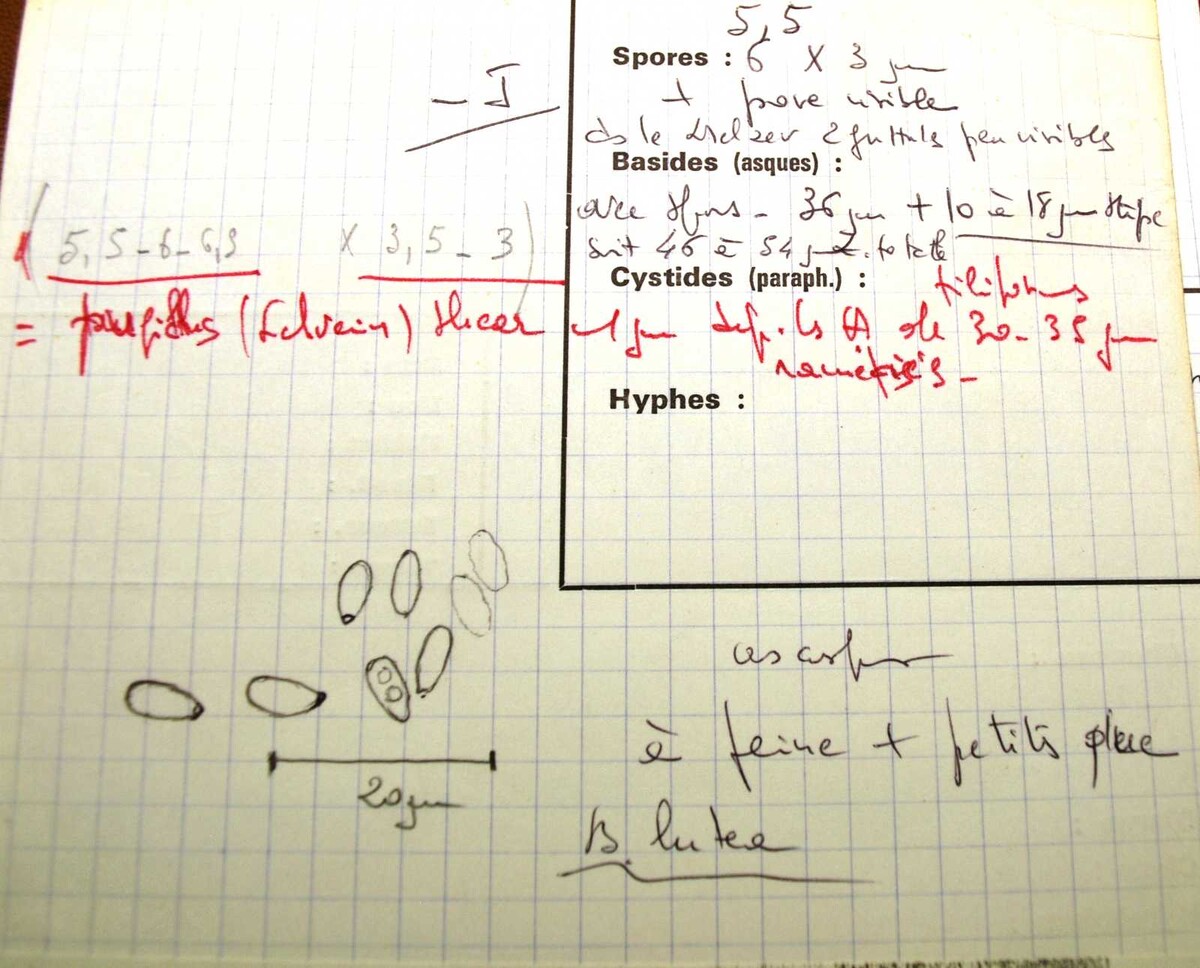 5,5
Spores : 6 x 3 µm
+ pore visible
ds le Melzer 2 guttules peu visibles
Basides (asques) :
avec spores - 36 µm + 10 à 18 µm stipe
soit 46 à 54 µm totale
Cystides (paraph.) : filiformes
1 µm dép. les de 30-35 µm
ramifiés -
Hyphes :
- I
(5,5-6-6,5 x 3,5-3)
= (Schwein)
20 µm
ascospores
à peine + petits que
B. lutea